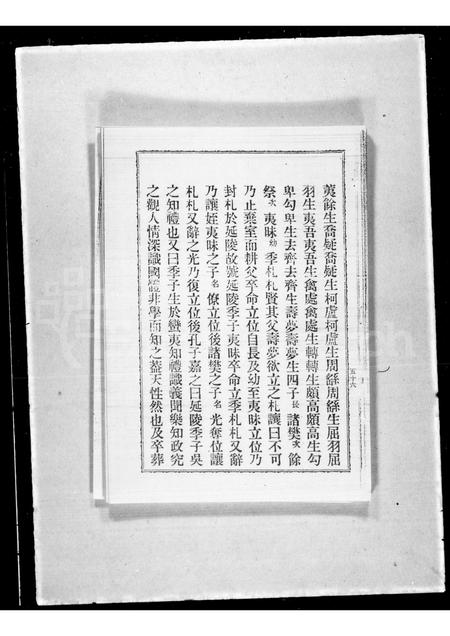 蕢餘生喬疑喬疑生柯盧柯盧生周繇周繇生屈羽屈
羽生夷吾夷吾生禽處禽處生轉轉生頗高頗高生勾
卑勾卑生去齊去齊生壽夢壽夢生四子長諸樊次餘
祭次夷昧幼季札札賢其父壽夢欲立之札讓曰不可
乃止棄室而耕父卒命立位自長及幼至夷昧立位乃
封札於延陵故號延陵季子夷昧卒命立季札札又辭
乃讓姪夷昧之子名僚立位後諸樊之子名光奪位讓
札札又辭之光乃復立位後孔子嘉之曰延陵季子吳
之知禮也又曰季子生於蠻夷知禮識義聞樂知政究
之觀人情深識國體非學而知之蓋天性然也及卒葬
五十六